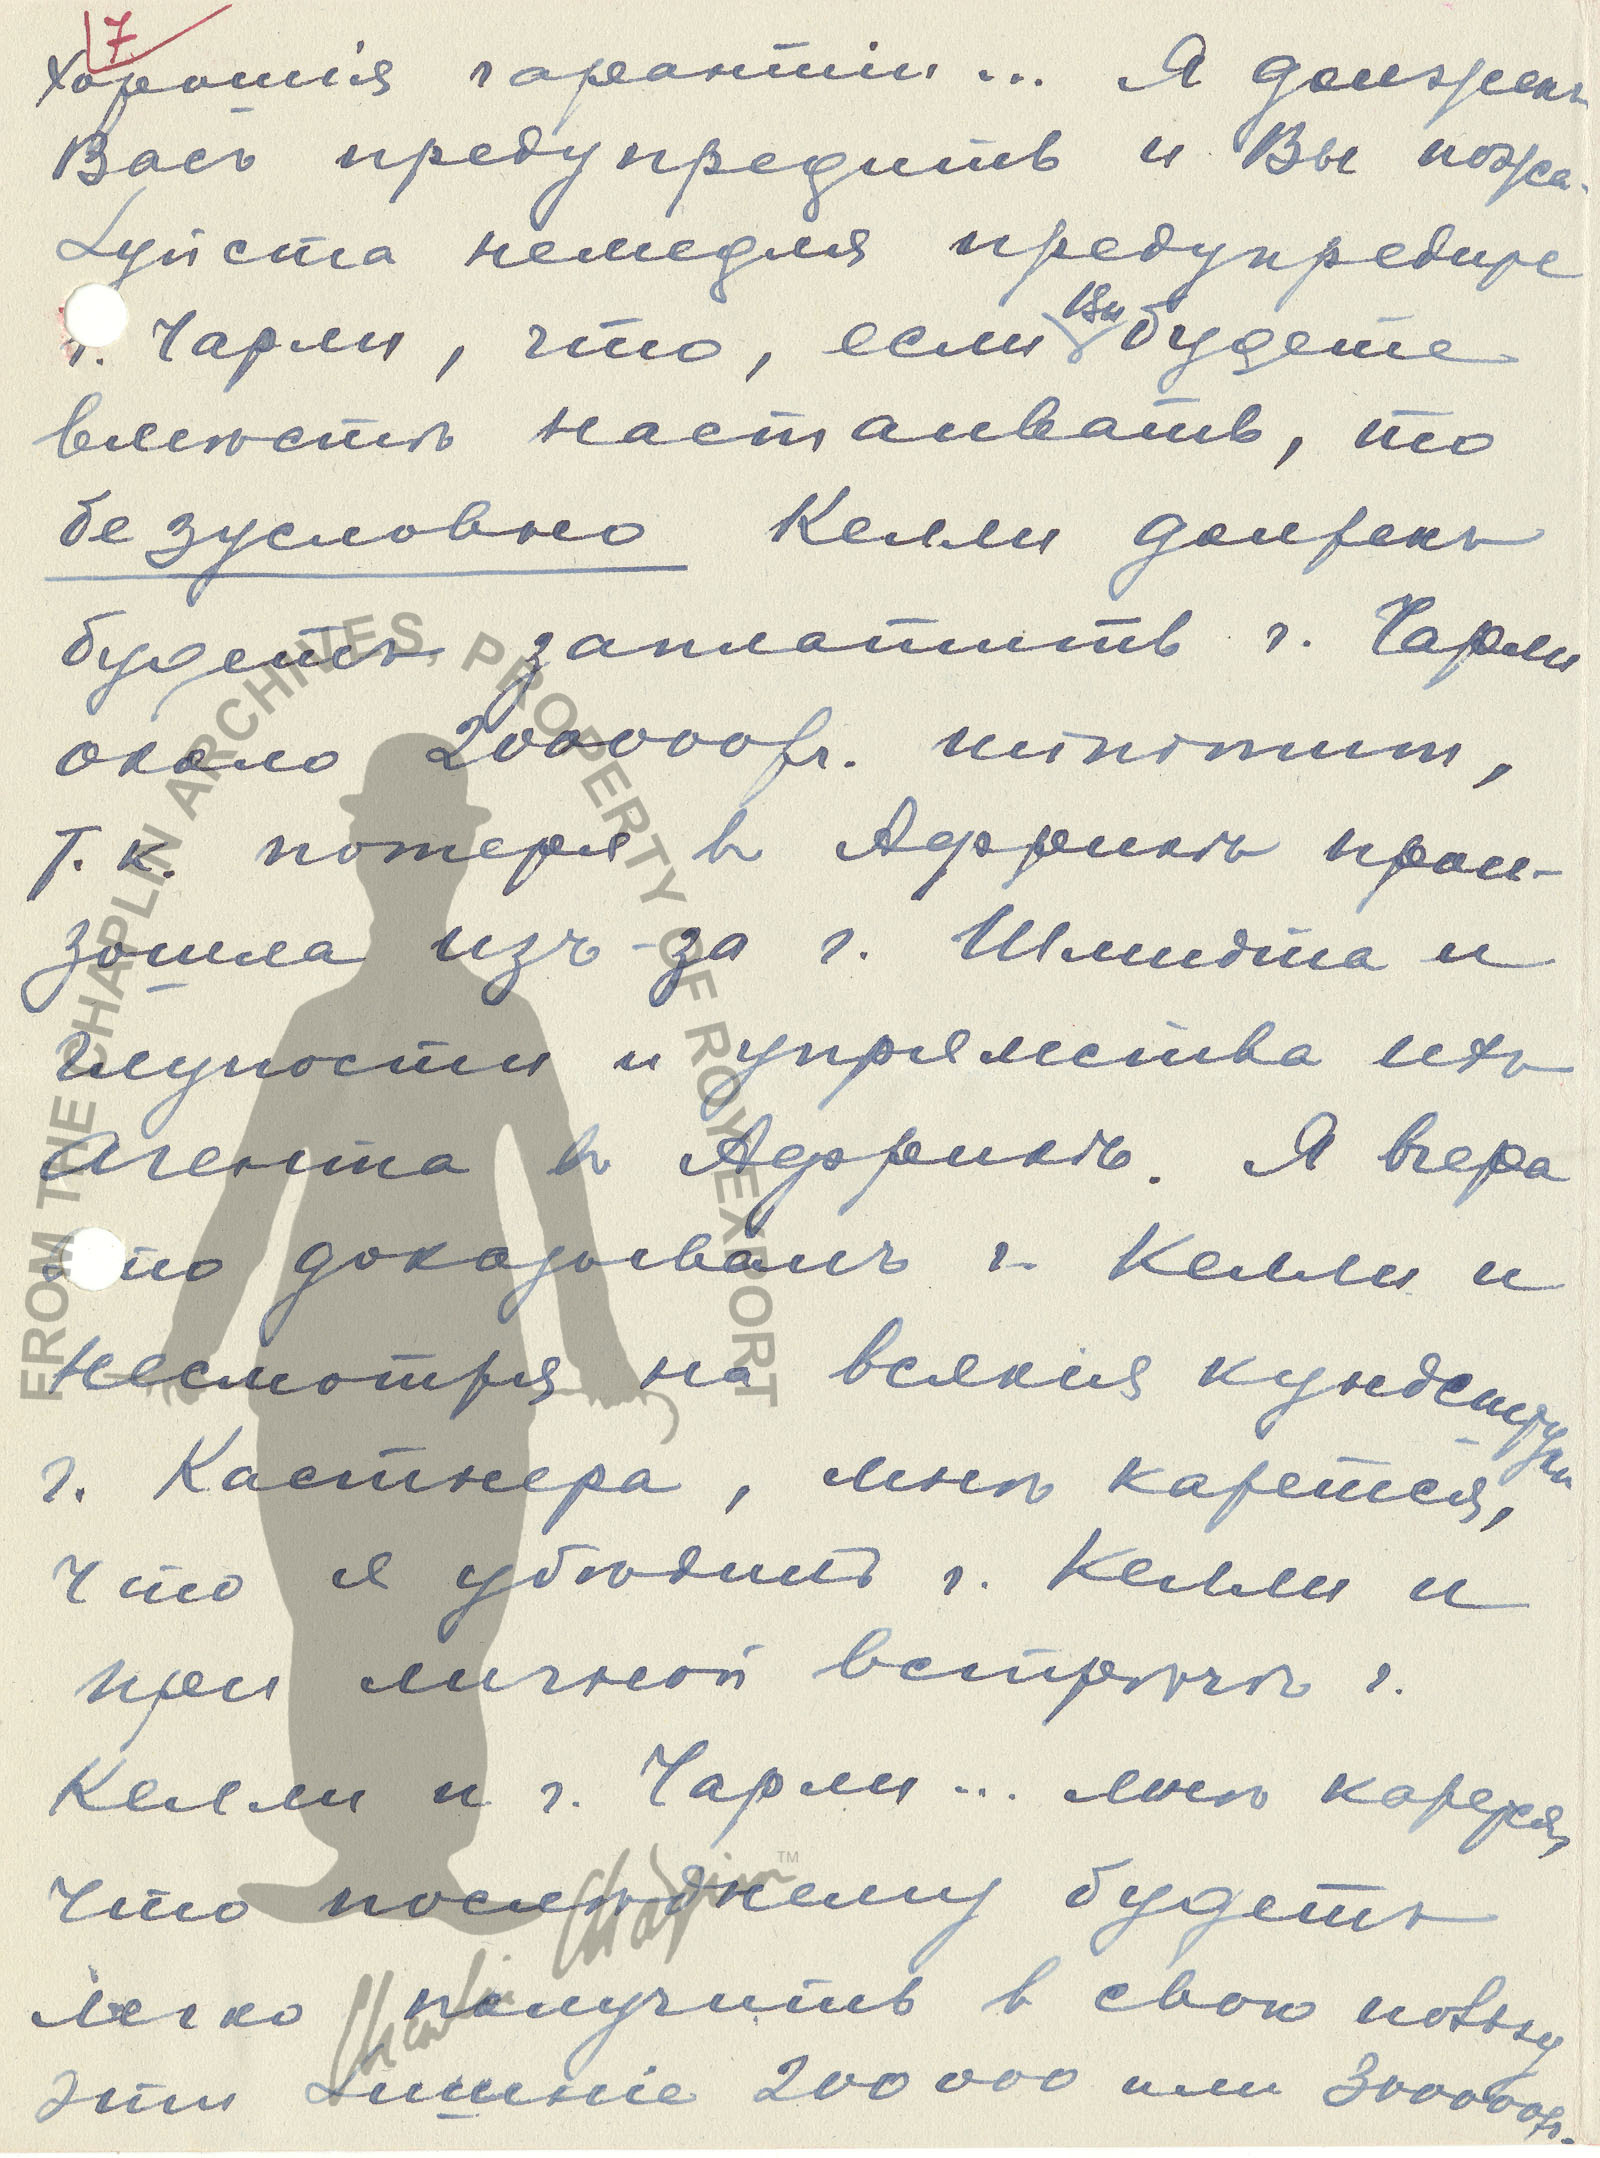 7
хорошія гарантіи... Я долженъ
Васъ предупредить и Вы пожа-
луйста немедля предупредите
г. Чарли, что, если Вы будете
вмѣстѣ настаивать, то
безусловно Келли долженъ
будетъ заплатить г. Чарли
около 200000 fr. minimum,
т. к. потеря въ Африкѣ прои-
зошла изъ-за г. Шмидта и
глупости и упрямства ихъ
агента въ Африкѣ. Я вчера
это доказывалъ г. Келли и
несмотря на всякія кундштуки
г. Кастнера, мнѣ кажется,
что я убѣдилъ г. Келли и
при личной встрѣчѣ г.
Келли и г. Чарли... мнѣ кажется,
что послѣднему будетъ
легко получить в свою пользу
эти лишніе 200000 или 300000 fr.
FROM THE CHAPLIN ARCHIVES, PROPERTY OF ROY EXPORT
Charlie Chaplin™